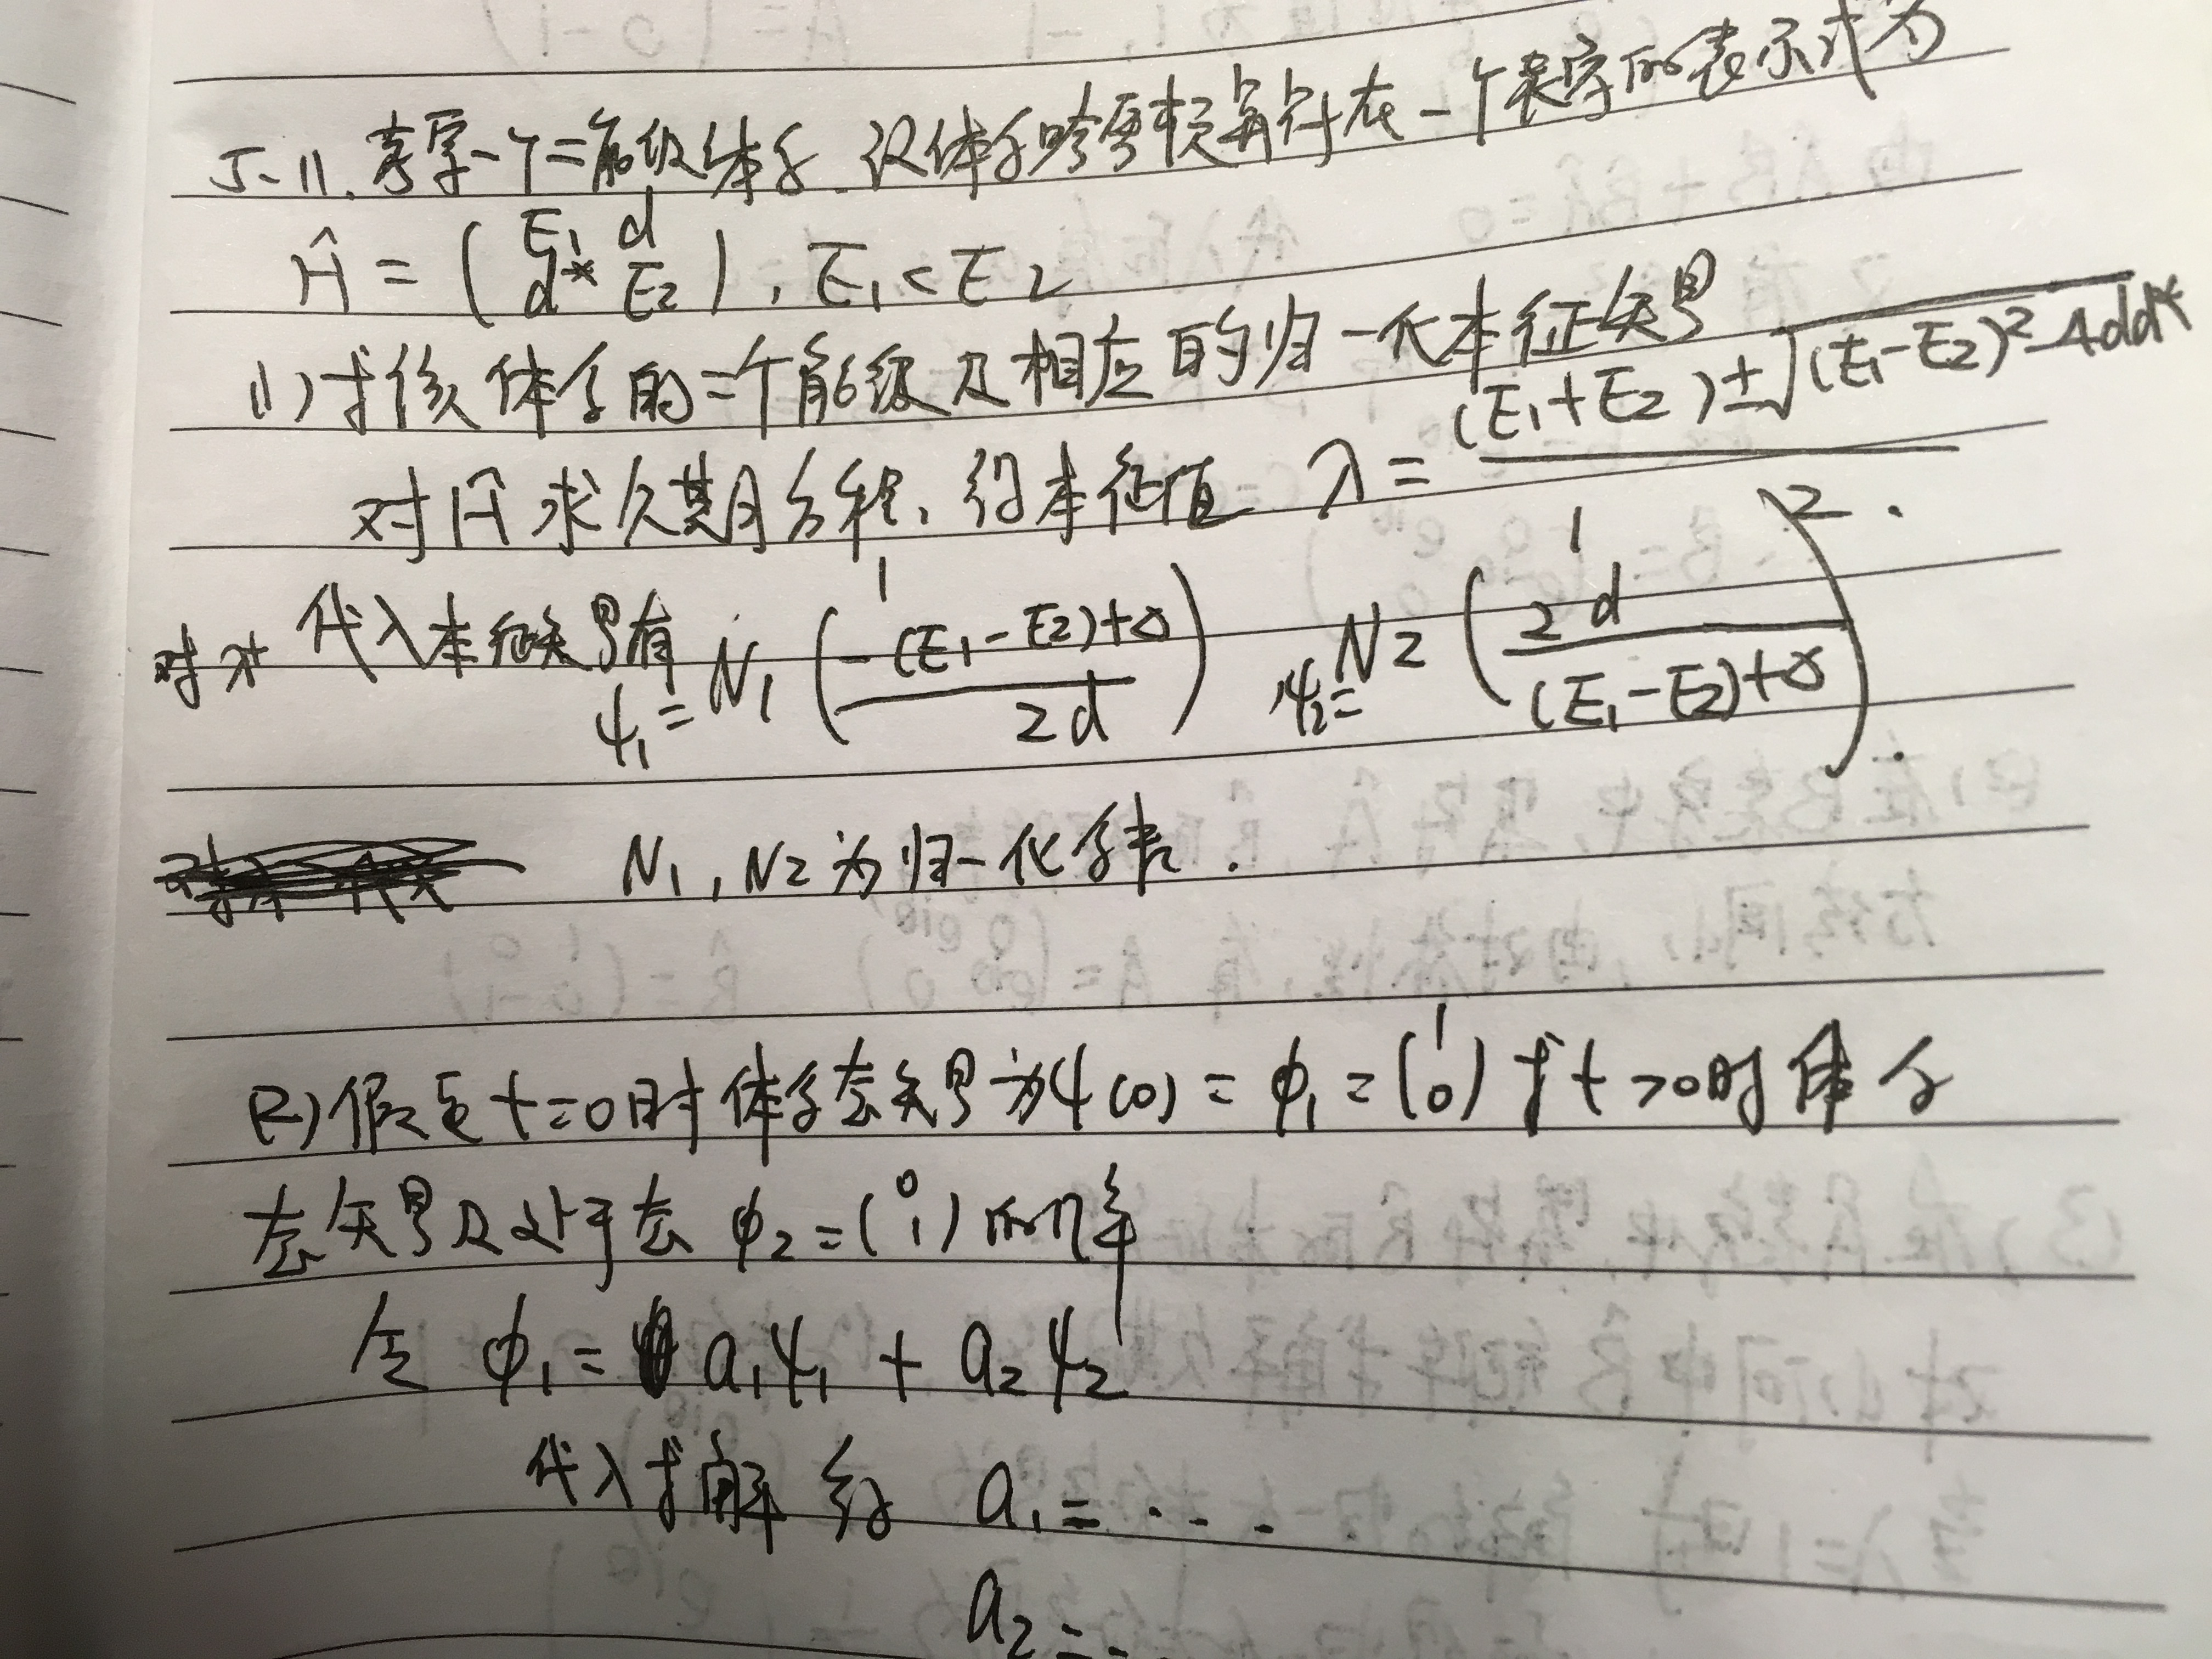 5-11. 考虑一个二能级体系. 设体系哈密顿算符在一个表象的表示式为
Ĥ = ( E₁ d d* E₂ ), E₁ < E₂
(1) 求该体系的二个能级及相应的归一化本征矢量
对 Ĥ 求久期方程, 得本征值 λ = ((E₁+E₂) ± √((E₁-E₂)²-4dd*)) / 2 .
对 λ± 代入本征矢量有 ψ₁ = N₁ ( 1 (-(E₁-E₂)+δ) / 2d ) ψ₂ = N₂ ( 1 2d / ((E₁-E₂)+δ) ).
N₁, N₂ 为归一化系数.
(2) 假定 t=0时 体系态矢量为 ψ(0) = φ₁ = ( 1 0 ) 求 t>0时 体系
态矢量及处于态 φ₂ = ( 0 1 ) 的几率
令 φ₁ = a₁ψ₁ + a₂ψ₂
代入求解 得 a₁ = ...
a₂ = ..